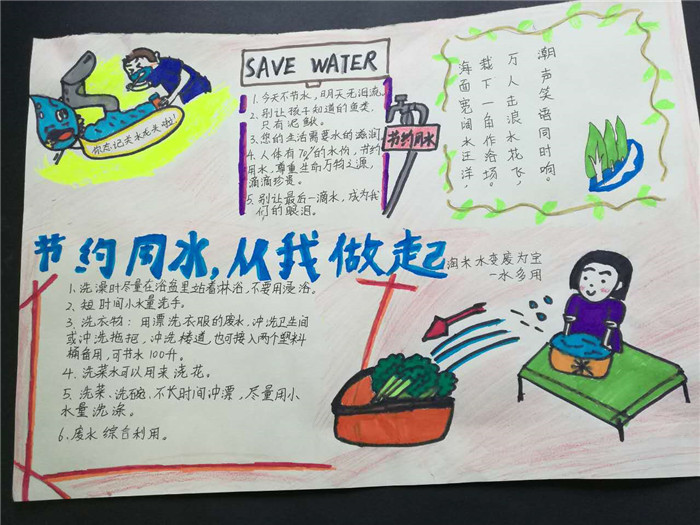 你忘记关水龙头啦！
SAVE WATER
1. 今天不节水，明天无泪流。
2. 别让孩子知道的鱼类，
只有泥鳅。
3. 您的生活需要水的滋润
4. 人体有70%的水份，节约
用水，尊重生命万物之源，
滴滴珍贵。
5. 别让最后一滴水，成为我
们的眼泪。
节约用水
潮声笑语同时响。
万人击浪水花飞，
栽下一角作浴场。
海面宽阔水汪洋，
节约用水，从我做起
淘米水变废为宝
一水多用
1、洗澡时尽量在浴盘里站着淋浴，不要用浸浴。
2、短时间小水量洗手。
3、洗衣物：用漂洗衣服的废水，冲洗卫生间
或冲洗拖把，冲洗楼道，也可接入两个塑料
桶备用，可节水100升。
4、洗菜水可以用来浇花。
5、洗菜、洗碗，不长时间冲漂，尽量用小
水量洗涤。
6、废水综合利用。